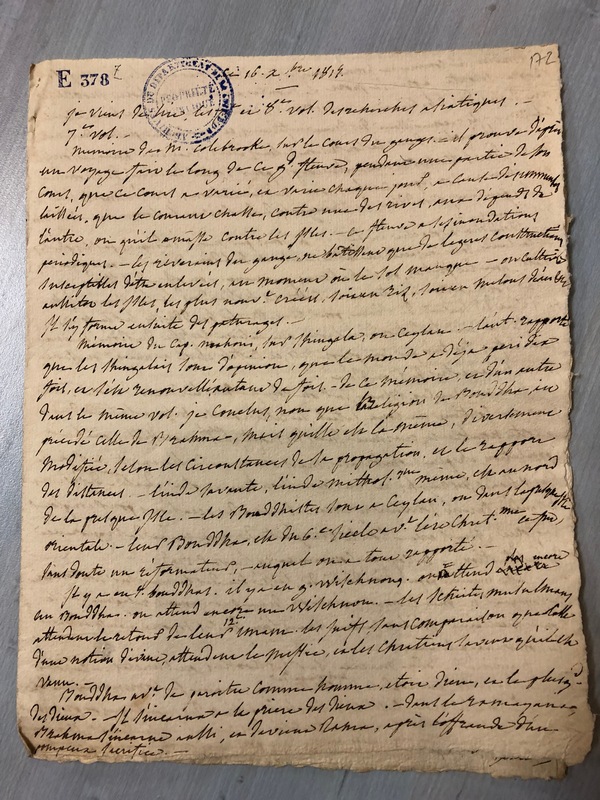 E 378 7
172
ce 16. Xbre 1818.
ARCHIVES DU DÉPARTEMENT DE LA
PROPRIÉTÉ PUBLIQUE
je viens de lire les et 8e vol. des recherches asiatiques. —
7e vol.
mémoire de M. Colebrooke, sur le cours du gange. — il prouve d'après
un voyage fait le long de ce gd fleuve, pendant une partie de son
cours, que ce cours a varié, et varie chaque jour, a cause des
que le courant chasse, contre une des rives, aux dépends de
l'autre, ou qu'il amasse contre les isles. — ce fleuve a ses inondations
périodiques. — les riverains du gange, ne batissent que de légères constructions
susceptibles d'être enlevées, au moment où le sol manque. — on cultive
aussitôt les isles, les plus nouvt créées, soit en riz, soit en
Il s'y forme ensuite des paturages. —
mémoire du cap. mahoni, sur Singala, ou Ceylan. — l'aut. rapporte
que les Shingalais sont d'opinion, que le monde a déjà péri dix
fois, et s'est renouvellé autant de fois. — de ce mémoire, et d'un autre
dans le même vol. je conclus, non que la religion de Bouddha, ait
précédé celle de Brahma, mais qu'elle est la même, diversement
modifiée, selon les circonstances de sa propagation, et le rapport
des distances. — l'inde savante, l'inde mithol.que même, est au nord
de la presque isle. — les Bouddhistes sont a Ceylan, ou dans la presqu'isle
orientale. — leur Bouddha, est du 6.e siècle avt l'ère Chret.
sans doute un réformateur, — auquel on a tout rapporté. —
Il y a eu bouddhas. il y a eu 9. Wischnou. on attend encore
un Bouddha. on attend encore un Wischnou. — les schiites, musulmans
attendent le retour de leur 12e iman. les juifs, sans comparaison
d'une notion divine, attendent le Messie, et les Chrétiens savent qu'il est
venu. —
Bouddha avt de paroitre comme homme, etoit dieu, et le plus gd
des dieux. — Il s'incarna a la priere des dieux. — dans le ramayana,
Brahma s'incarne aussi, et devient Rama, après l'offrande d'un
pompeux sacrifice. —